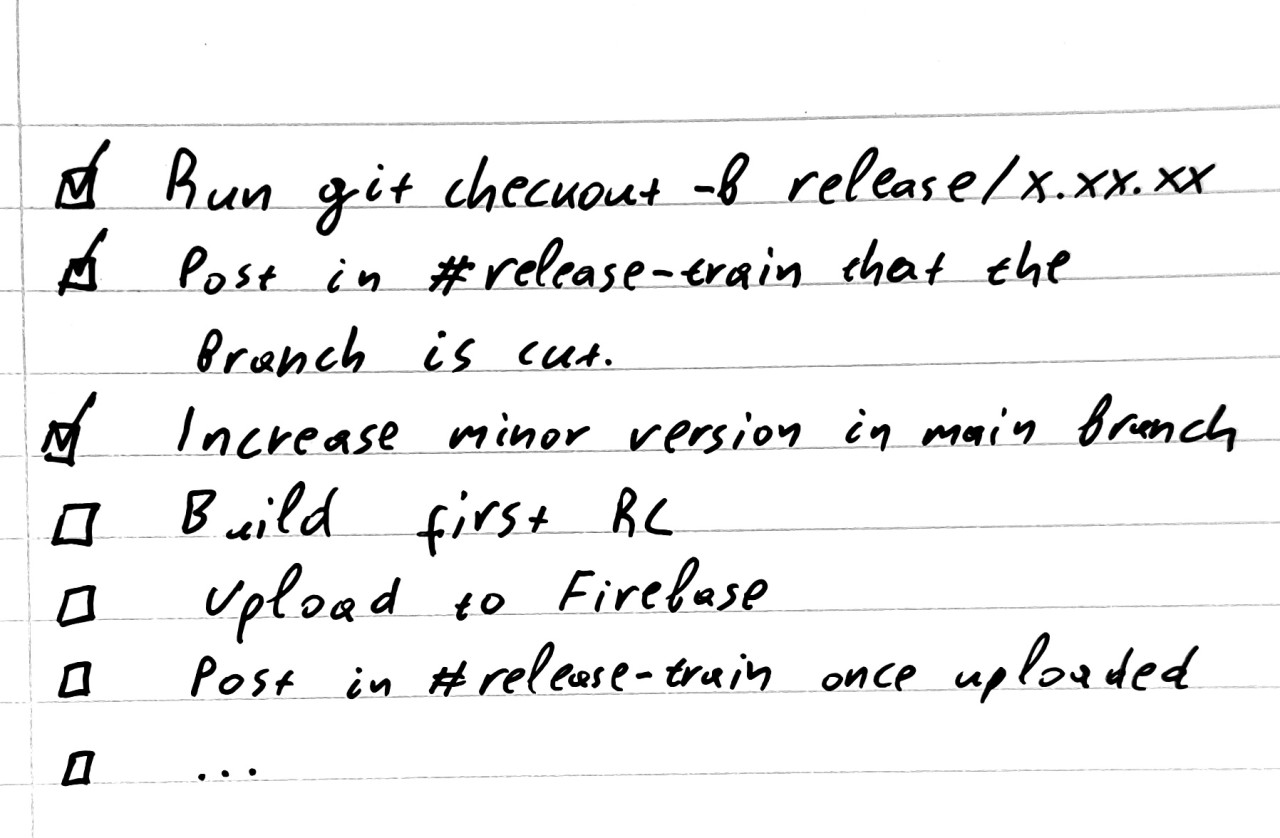 Run git checkout -b release/x.xx.xx
Post in #release-train that the
branch is cut.
Increase minor version in main branch
Build first RC
Upload to Firebase
Post in #release-train once uploaded
...